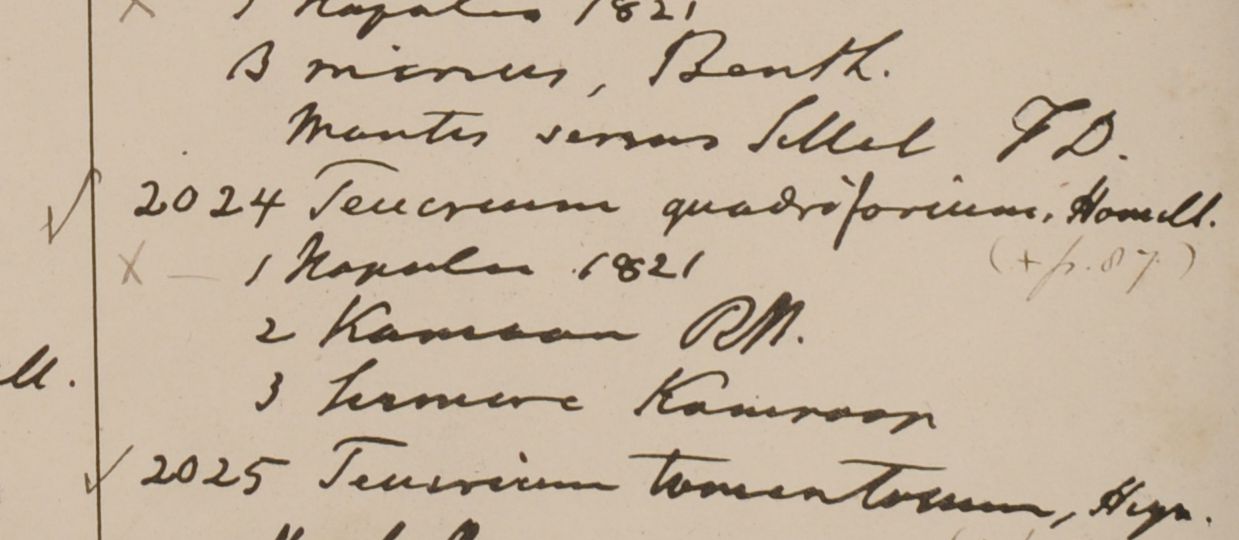 x 1 Napalia 1821
B minus, Benth.
Montes Sillet F D.
✓ 2024 Teucrium quadrifarium, Hamilt.
x — 1 Napalia 1821
(+ p. 87.)
2 Kamaon RM.
3 Kamroop
ll.
✓ 2025 Teucrium tomentosum, Heyn.